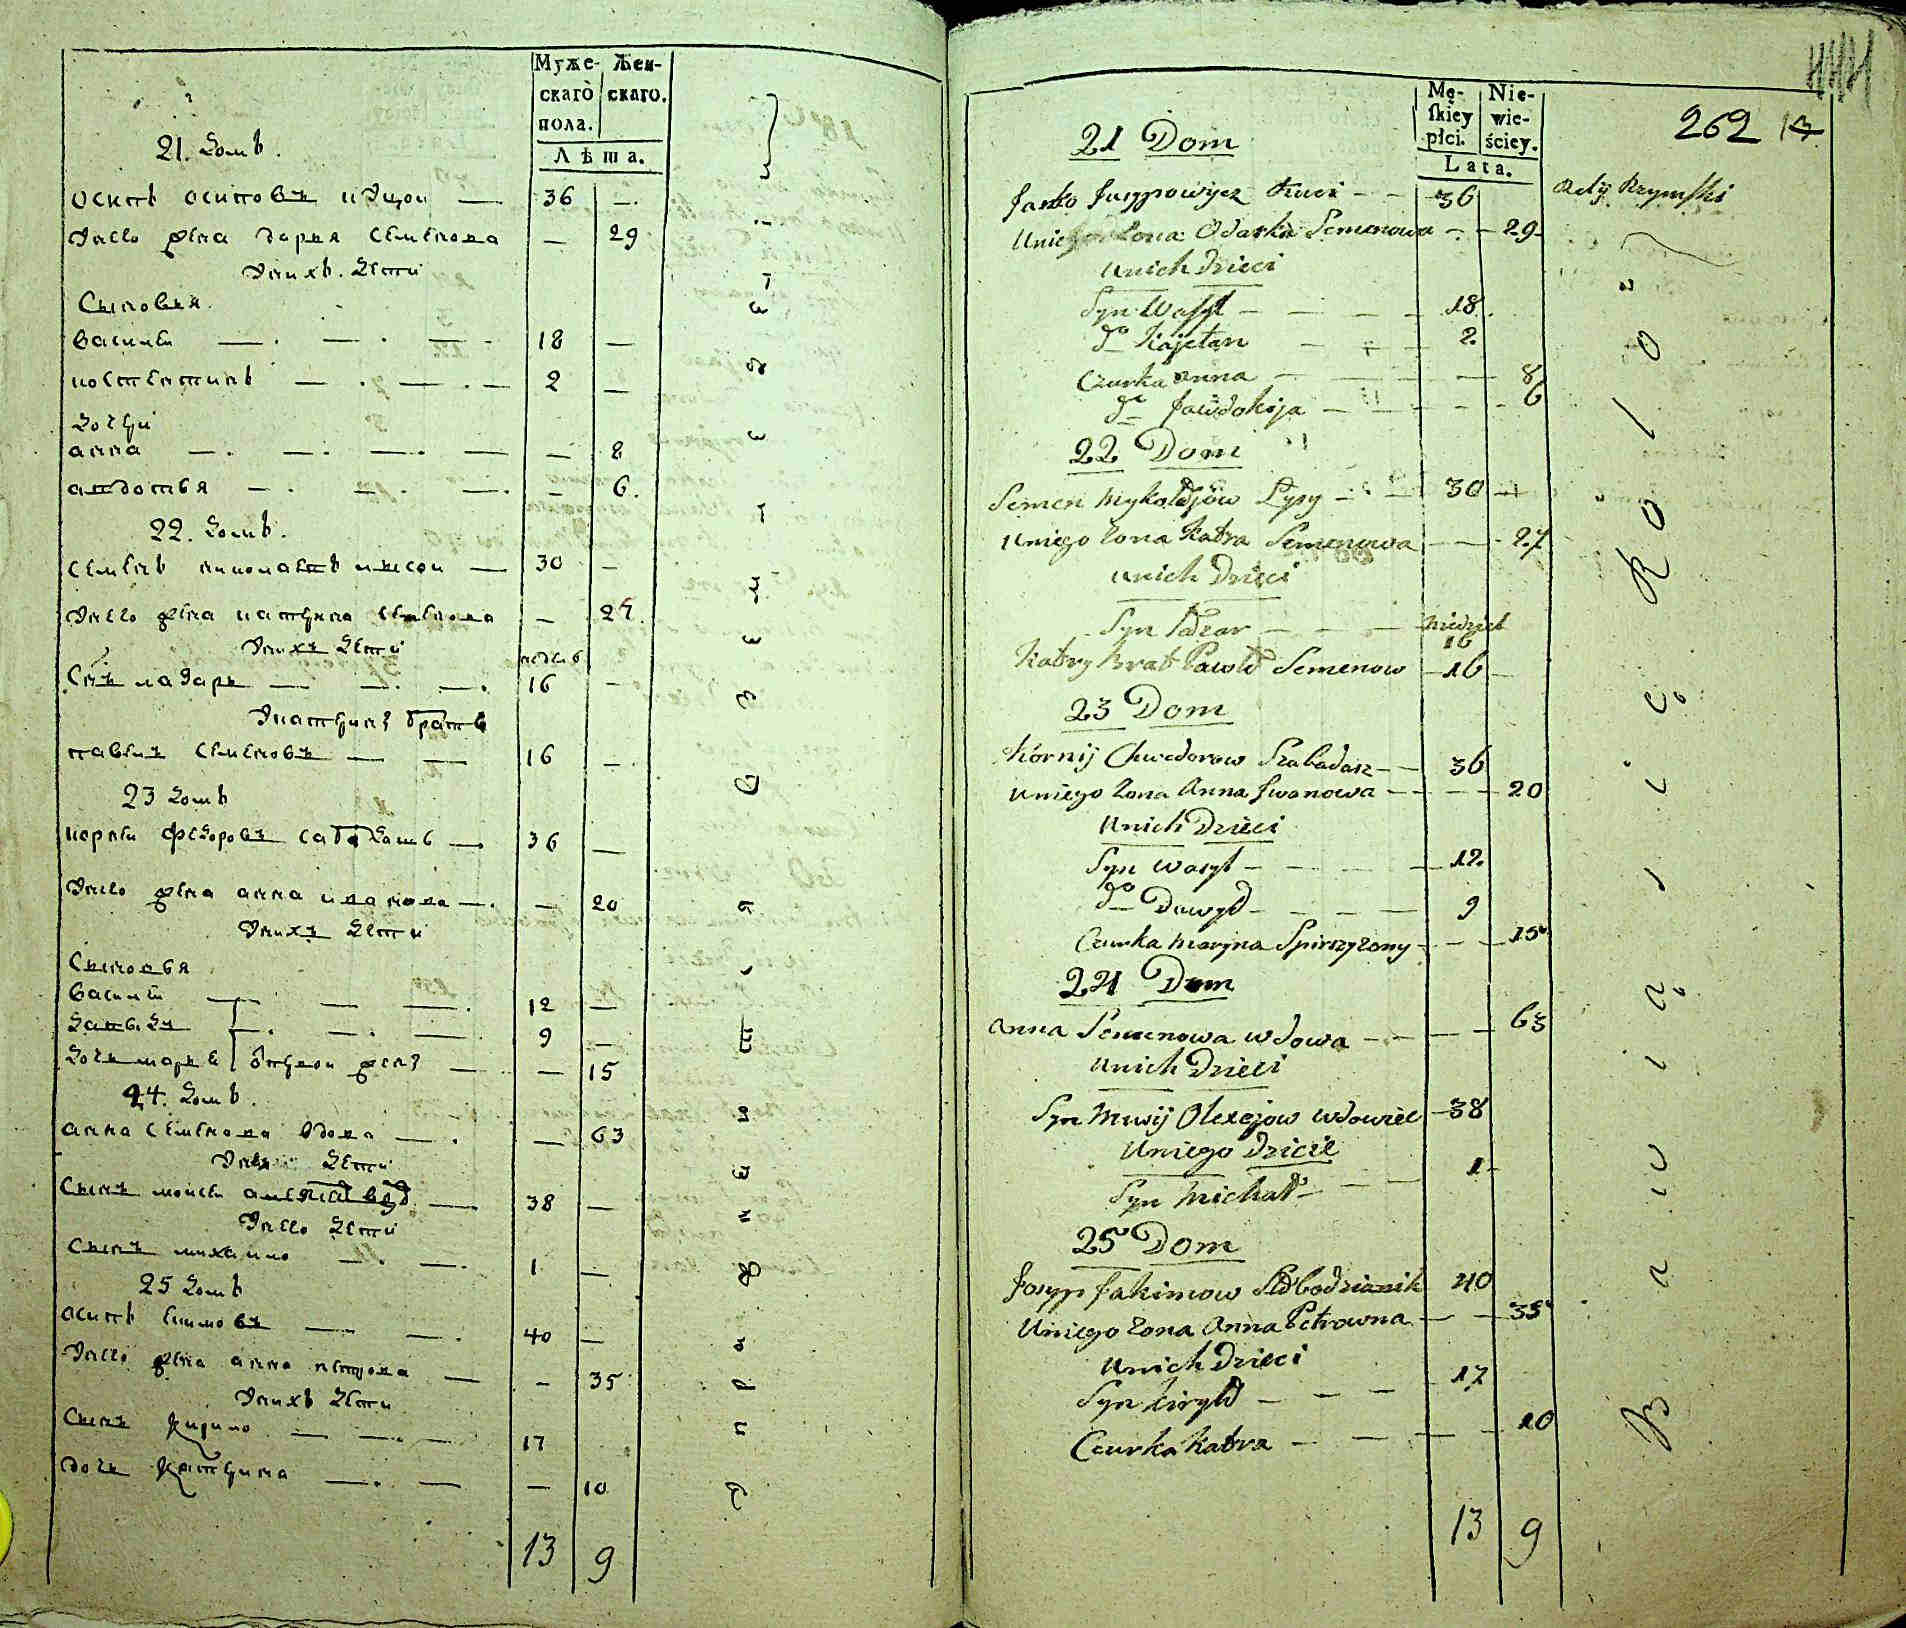 Муже-
скаго
пола.
Жен-
скаго.
Лѣта.
21. Домъ.
осипъ осиповъ — 36 —
Унего жена дарья семенова — 29
Унихъ. Дети
Сыновья.
василь — 18 —
костентинъ — 2 —
Дочери
анна — 8
авдотья — 6.
22. Домъ.
семенъ — 30 —
Унего жена катерина семенова — 27
Унихъ Дети
недель
Сынъ лазарь — 16 —
Укатерины братъ
павелъ семеновъ — 16 —
23 Домъ
корнеи федоровъ сабадашъ — 36 —
Унего жена анна иванова — 20
Унихъ Дети
Сыновья
василеи — 12 —
Давидъ — 9 —
Дочь марья отпервои жены — 15
24. Домъ.
анна семенова вдова — 63
Дети
Сынъ моисеи — 38 —
Унего Дети
Сынъ михаило — 1 —
25 Домъ
осипъ екимовъ — 40 —
Унего жена анна петрова — 35
Унихъ Дети
Сынъ Кирило — 17
дочь Катерина — 10
13 9
Mę-
skiey
płci.
Nie-
wie-
ściey.
Lata.
262
21 Dom
Josypowicz — 36
Uniego Zona Odarka Semenowa — 29
Unich Dzieci
Syn Wasyl — 18.
do Kajetan — 2.
Czurka Anna — 8
do Jawdokija — 6
22 Dom
Semen Mykołajow Łysy — 30 —
Uniego Zona Katra Semenowa — 27
Unich Dzieci
Syn Łazar — niedziel 16
Katry Brat Pawło Semenow — 16 —
23 Dom
Kornij Chwedorow Szabadasz — 36
Uniego Zona Anna Iwanowa — 20
Unich Dzieci
Syn Wasyl — 12
do Dawyd — 9
Czurka Maryna Spirszyzony — 15
24 Dom
Anna Semenowa Wdowa — 63
Unich Dzieci
Syn Musij Olexejow Wdowiec — 38
Uniego Dziecie
Syn Michał — 1
25 Dom
Josyp Jakimow Słobodzianik 40
Uniego Zona Anna Petrowna — 35
Unich Dzieci
Syn Kiryło — 17
Czurka Katra — 10
13 9